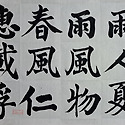 雨人夏
雨風物
春風仁
惠載浮